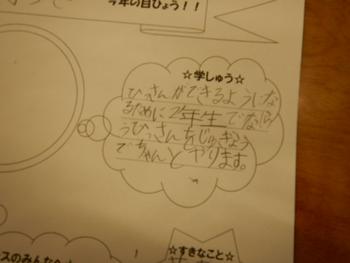 今年の目ひょう！！
☆学しゅう☆
ひっさんができるようにな
るために2年生でなら
うひっさんをじゅぎょう
でちゃんとやります。
スのみんなへ
☆すきなこと☆